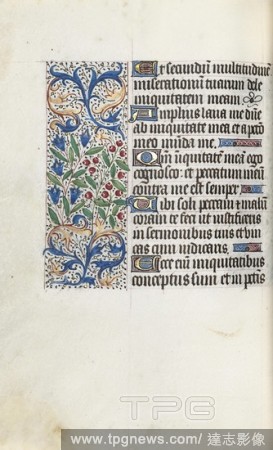 Et secundum multitudinem
miserationum tuarum dele
iniquitatem meam
Amplius lava me ab
ab iniquitate mea et a pecca
meo munda me
Qm iniquitatem meam ego
cognosco et peccatum meum
contra me est semper
Tibi soli peccavi et malum
coram te feci ut iustificeris
in sermonibus tuis et vin
cas cum iudicaris
Ecce enim iniquitatibus
conceptus sum et in pctis
TPG
www.tpgnews.com/ 達志影像